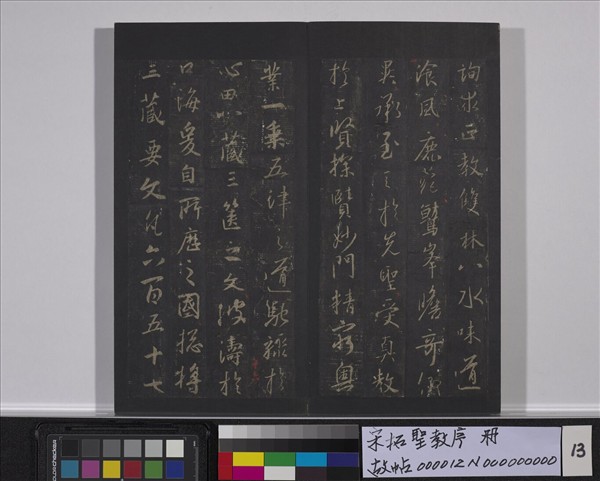 詢求正教雙林八水味道
飡風鹿菀鷲峯瞻奇仰
異承至言於先聖受真教
於上賢探賾妙門精窮奧
業一乘五律之道馳驟於
心田八藏三篋之文波濤於
口海爰自所歷之國揔將
三藏要文凡六百五十七
宋拓聖教序 冊
故帖000012N000000000
13